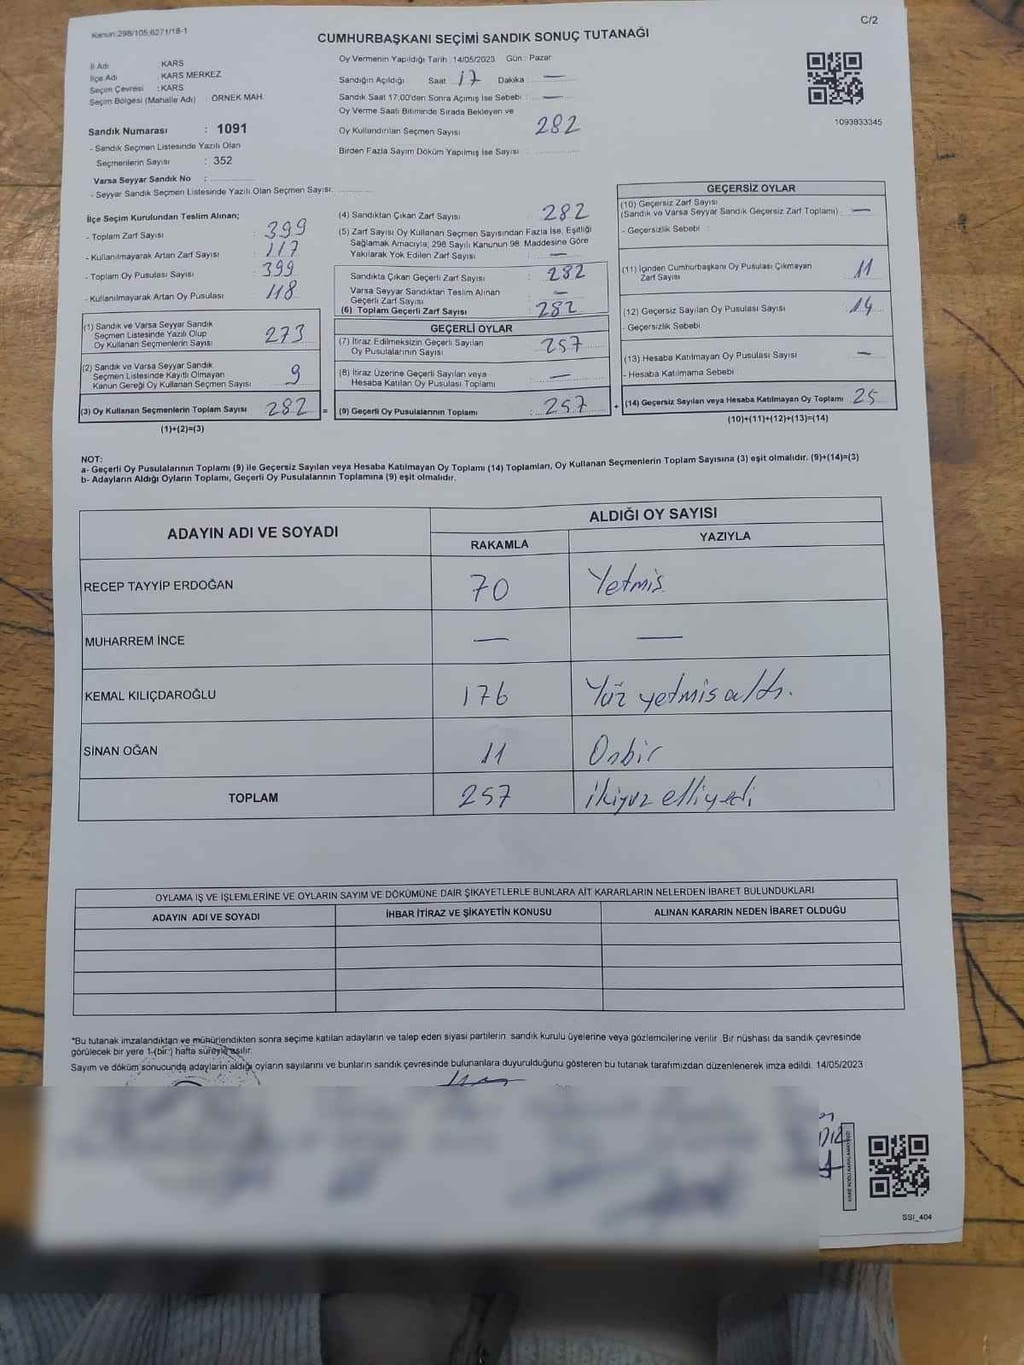 Kanun:298/105,6271/18-1
C/2
CUMHURBAŞKANI SEÇİMİ SANDIK SONUÇ TUTANAĞI
İl Adı : KARS
İlçe Adı : KARS MERKEZ
Seçim Çevresi : KARS
Seçim Bölgesi (Mahalle Adı) : ÖRNEK MAH.
Sandık Numarası : 1091
- Sandık Seçmen Listesinde Yazılı Olan
Seçmenlerin Sayısı : 352
Varsa Seyyar Sandık No :
- Seyyar Sandık Seçmen Listesinde Yazılı Olan Seçmen Sayısı:
Oy Vermenin Yapıldığı Tarih : 14/05/2023 Gün : Pazar
Sandığın Açıldığı Saat 17 Dakika —
Sandık Saat 17.00'den Sonra Açılmış İse Sebebi : —
Oy Verme Saati Bitiminde Sırada Bekleyen ve
Oy Kullandırılan Seçmen Sayısı : 282
Birden Fazla Sayım Döküm Yapılmış İse Sayısı :
1093833345
İlçe Seçim Kurulundan Teslim Alınan;
- Toplam Zarf Sayısı : 399
- Kullanılmayarak Artan Zarf Sayısı : 117
- Toplam Oy Pusulası Sayısı : 399
- Kullanılmayarak Artan Oy Pusulası : 118
(1) Sandık ve Varsa Seyyar Sandık
Seçmen Listesinde Yazılı Olup
Oy Kullanan Seçmenlerin Sayısı : 273
(2) Sandık ve Varsa Seyyar Sandık
Seçmen Listesinde Kayıtlı Olmayan
Kanun Gereği Oy Kullanan Seçmen Sayısı : 9
(3) Oy Kullanan Seçmenlerin Toplam Sayısı : 282 =
(1)+(2)=(3)
(4) Sandıktan Çıkan Zarf Sayısı : 282
(5) Zarf Sayısı Oy Kullanan Seçmen Sayısından Fazla İse, Eşitliği
Sağlamak Amacıyla, 298 Sayılı Kanunun 98. Maddesine Göre
Yakılarak Yok Edilen Zarf Sayısı : —
Sandıkta Çıkan Geçerli Zarf Sayısı : 282
Varsa Seyyar Sandıktan Teslim Alınan
Geçerli Zarf Sayısı : —
(6) Toplam Geçerli Zarf Sayısı : 282
GEÇERLİ OYLAR
(7) İtiraz Edilmeksizin Geçerli Sayılan
Oy Pusulalarının Sayısı : 257
(8) İtiraz Üzerine Geçerli Sayılan veya
Hesaba Katılan Oy Pusulası Toplamı : —
(9) Geçerli Oy Pusulalarının Toplamı : 257 +
GEÇERSİZ OYLAR
(10) Geçersiz Zarf Sayısı
(Sandık ve Varsa Seyyar Sandık Geçersiz Zarf Toplamı) : —
- Geçersizlik Sebebi :
(11) İçinden Cumhurbaşkanı Oy Pusulası Çıkmayan
Zarf Sayısı : 11
(12) Geçersiz Sayılan Oy Pusulası Sayısı : 14
- Geçersizlik Sebebi
(13) Hesaba Katılmayan Oy Pusulası Sayısı : —
- Hesaba Katılmama Sebebi :
(14) Geçersiz Sayılan veya Hesaba Katılmayan Oy Toplamı : 25
(10)+(11)+(12)+(13)=(14)
NOT:
a- Geçerli Oy Pusulalarının Toplamı (9) ile Geçersiz Sayılan veya Hesaba Katılmayan Oy Toplamı (14) Toplamları, Oy Kullanan Seçmenlerin Toplam Sayısına (3) eşit olmalıdır. (9)+(14)=(3)
b- Adayların Aldığı Oyların Toplamı, Geçerli Oy Pusulalarının Toplamına (9) eşit olmalıdır.
ADAYIN ADI VE SOYADI ALDIĞI OY SAYISI
RAKAMLA YAZIYLA
RECEP TAYYİP ERDOĞAN 70 Yetmiş
MUHARREM İNCE — —
KEMAL KILIÇDAROĞLU 176 Yüz yetmiş altı.
SİNAN OĞAN 11 Onbir
TOPLAM 257 ikiyuz elliyedi
OYLAMA İŞ VE İŞLEMLERİNE VE OYLARIN SAYIM VE DÖKÜMÜNE DAİR ŞİKAYETLERLE BUNLARA AİT KARARLARIN NELERDEN İBARET BULUNDUKLARI
ADAYIN ADI VE SOYADI İHBAR İTİRAZ VE ŞİKAYETİN KONUSU ALINAN KARARIN NEDEN İBARET OLDUĞU
*Bu tutanak imzalandıktan ve mühürlendikten sonra seçime katılan adayların ve talep eden siyasi partilerin sandık kurulu üyelerine veya gözlemcilerine verilir. Bir nüshası da sandık çevresinde
görülecek bir yere 1 (bir) hafta süreyle asılır.
Sayım ve döküm sonucunda adayların aldığı oyların sayılarını ve bunların sandık çevresinde bulunanlara duyurulduğunu gösteren bu tutanak tarafımızdan düzenlenerek imza edildi. 14/05/2023
SSI_404